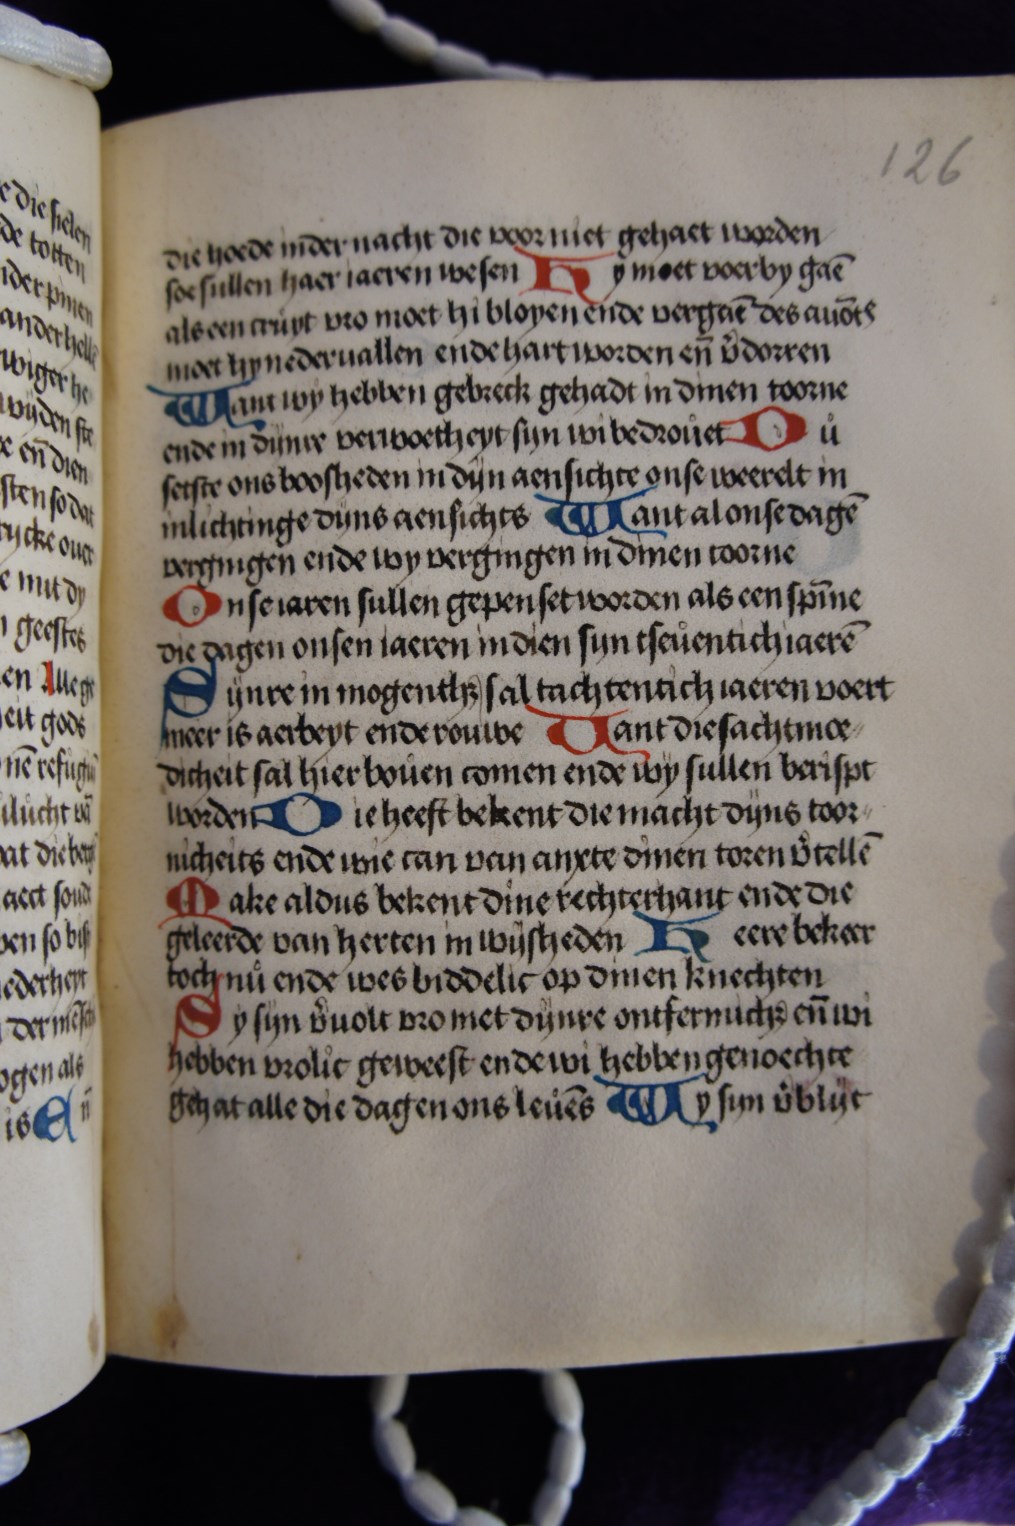 126
die hoede inder nacht die voor niet gehaet worden
soe sullen haer iaeren wesen Hy moet voerby gaē
als een cruyt vro moet hi bloyen ende vergaē des auōts
moet hy neder uallen ende hart worden en̄ v̄dorren
Want wy hebben gebreck gehadt in dinen toorne
ende in dijnre verwoetheyt sijn wi bedrouet Dů
setste ons boosheden in dijn aensichte onse weerelt in
inlichtinge dijns aensichts Want al onse dagē
vergingen ende wy vergingen in dinen toorne
Onse iaren sullen gepenset worden als een spīne
die dagen onsen iaeren in dien sijn tseuentich iaerē
Sijnre in mogenth; sal tachtentich iaeren voert
meer is aerbeyt ende rouwe Want die sachtmoe-
dicheit sal hier bouen comen ende wy sullen berispt
worden Die heeft bekent die macht dijns toor-
nicheits ende wie can van anxte dinen toren v̄tellē
Make aldus bekent dine rechterhant ende die
geleerde van herten in wijsheden Heere bekeer
toch nu ende wes biddelic op dinen knechten
Sy sijn v̄uolt vro met dijnre ontfermich; en̄ wi
hebben vrolic geweest ende wi hebben genoechte
gehat alle die dagen ons leuēs Wy sijn v̄blijt
e die sielen
de totten
nder pinen
ander hellē
wiger he
wijden ste
en̄ dien
sten so dat
rycke ouer
e mit dy
geestes
en Alle ge
eit gods
nē refugiū
ulucht vā
at die berg
aect soud
en so bist
ederheyt
der mēsch
ogen als
is En̄